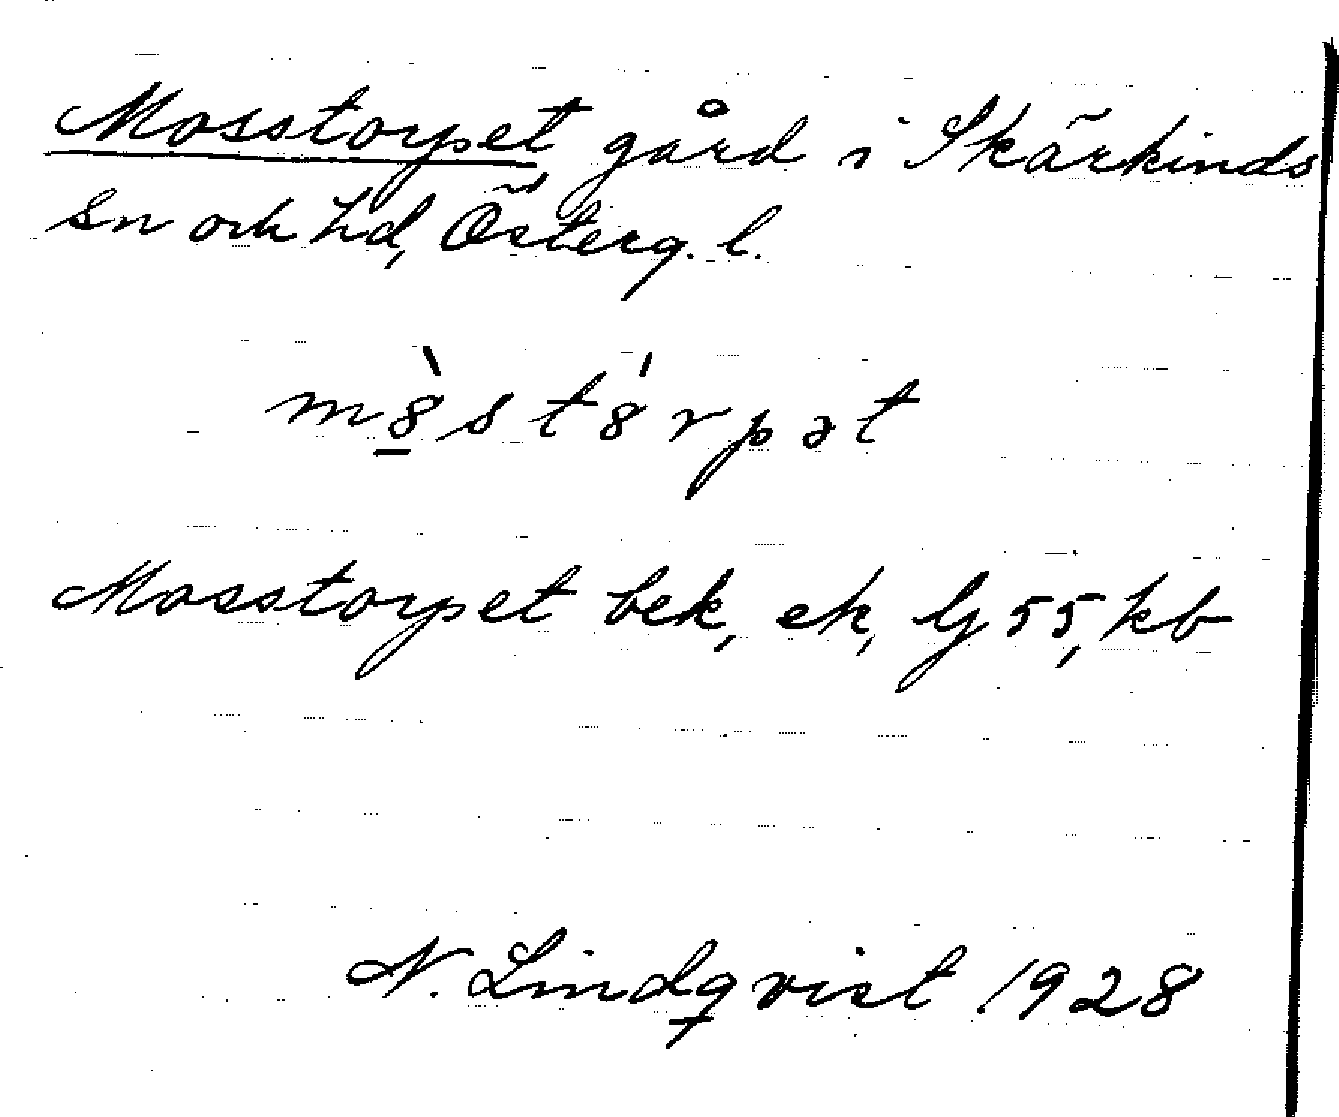 Mosstorpet gård i Skärkinds
sn och hd, Österg. l.
m8̠̀st8́rpət
Mosstorpet bek, ek, lj 55, kb
N. Lindqvist 1928